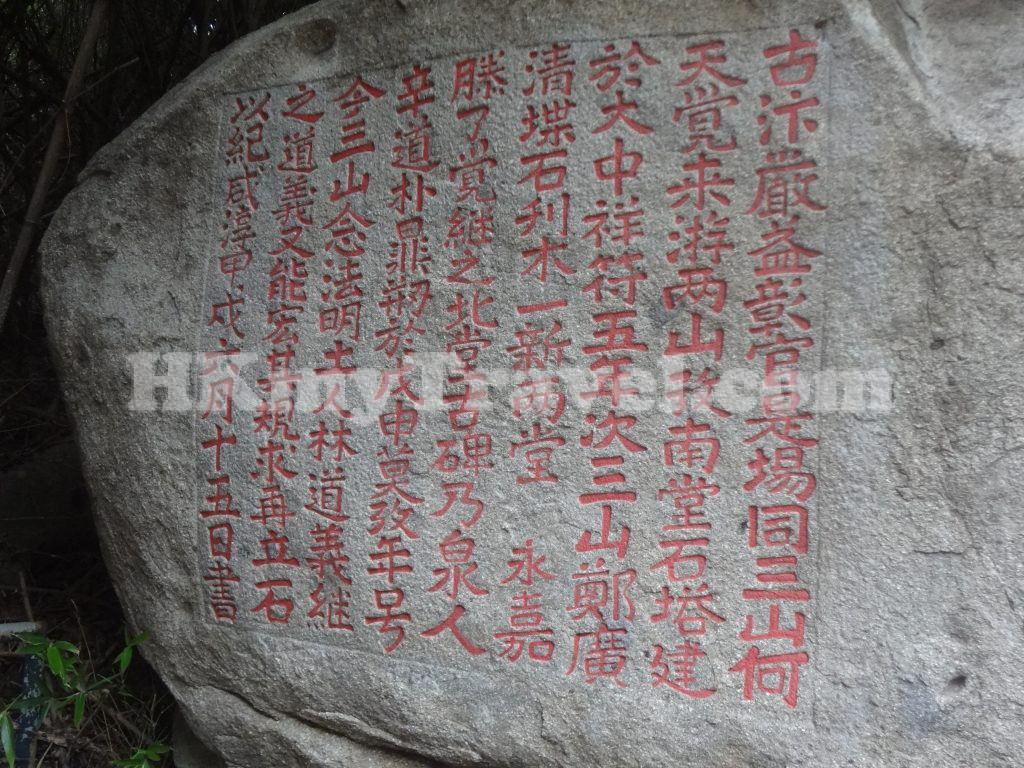 古汴嚴益彰官是場同三山何
天覺来游两山攷南堂石塔建
於大中祥符五年次三山鄭廣
清堞石刋木一新两堂 永嘉
滕了覺継之北堂古碑乃泉人
辛道朴鼎剏於戊申莫攷年号
今三山念法明土人林道義継
之道義又能宏其規求再立石
以紀咸淳甲戌六月十五日書
HKmyTravel.com